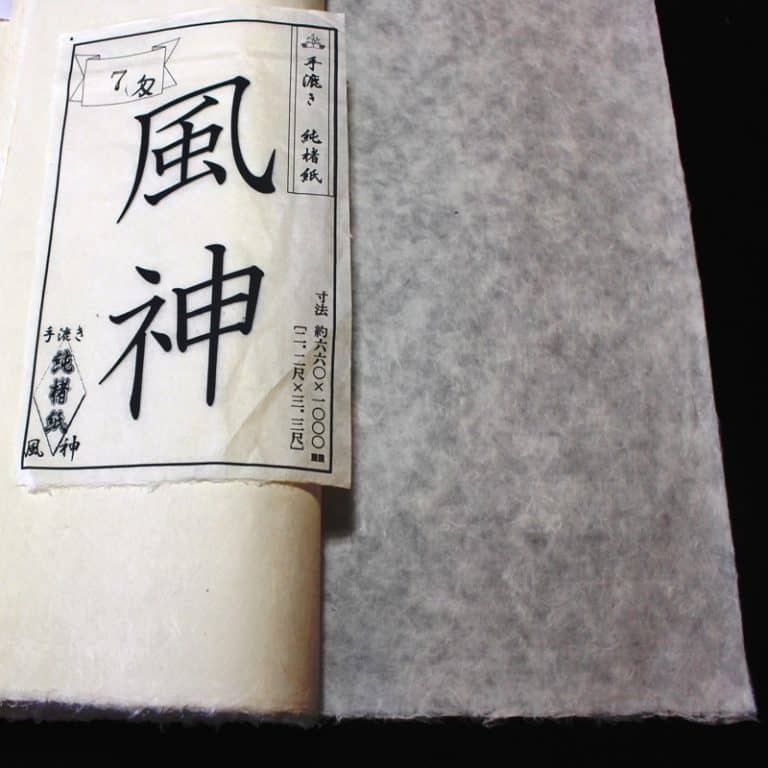 手漉き 純楮紙
7匁
風神
寸法 約六六〇×一〇〇〇㎜
〔二.二尺×三.三尺〕
手漉き
純楮紙
風神